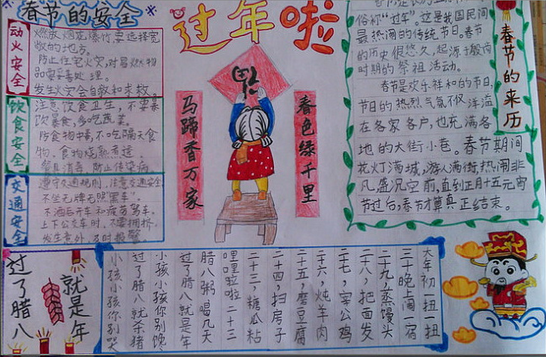 春节的安全
过年啦
动火安全
燃放烟花爆竹要选择宽
敞的地方。
防止住宅火灾,对易燃物
品要妥善处理。
发生火灾会自救和求救。
饮食安全
注意饮食卫生,不要暴
饮暴食,多吃蔬菜。
防食物中毒,不吃喝太食
物,食物烧熟煮透
餐具消毒,防止传染病。
交通安全
遵守交通规则,注意交通安全
不坐无牌无照"黑车"
不酒后开车和疲劳驾车。
上下公交车时,不要拥挤。
发生意外,及时报警
马蹄香万家
春色绿千里
春节的来历
俗称"过年",这是我国民间
最热闹的传统节日。春节
的历史很悠久,起源于殷商
时期的祭祖活动。
春节是欢乐祥和的节日,
节日的热烈气氛不仅洋溢
在各家各户,也充满各
地的大街小巷。春节期间
花灯满城,游人满街,热闹非
凡,盛况空前,直到正月十五元宵
节过后,春节才算真正结束。
过了腊八
就是年
小孩小孩你别哭
过了腊八就杀猪
小孩小孩你别馋
过了腊八就是年
腊八粥喝几天
哩哩啦啦二十三
二十三,糖瓜粘
二十四,扫房子
二十五,磨豆腐
二十六,炖羊肉
二十七,宰公鸡
二十八,把面发
二十九,蒸馒头
三十晚上闹一宵
大年初一扭一扭